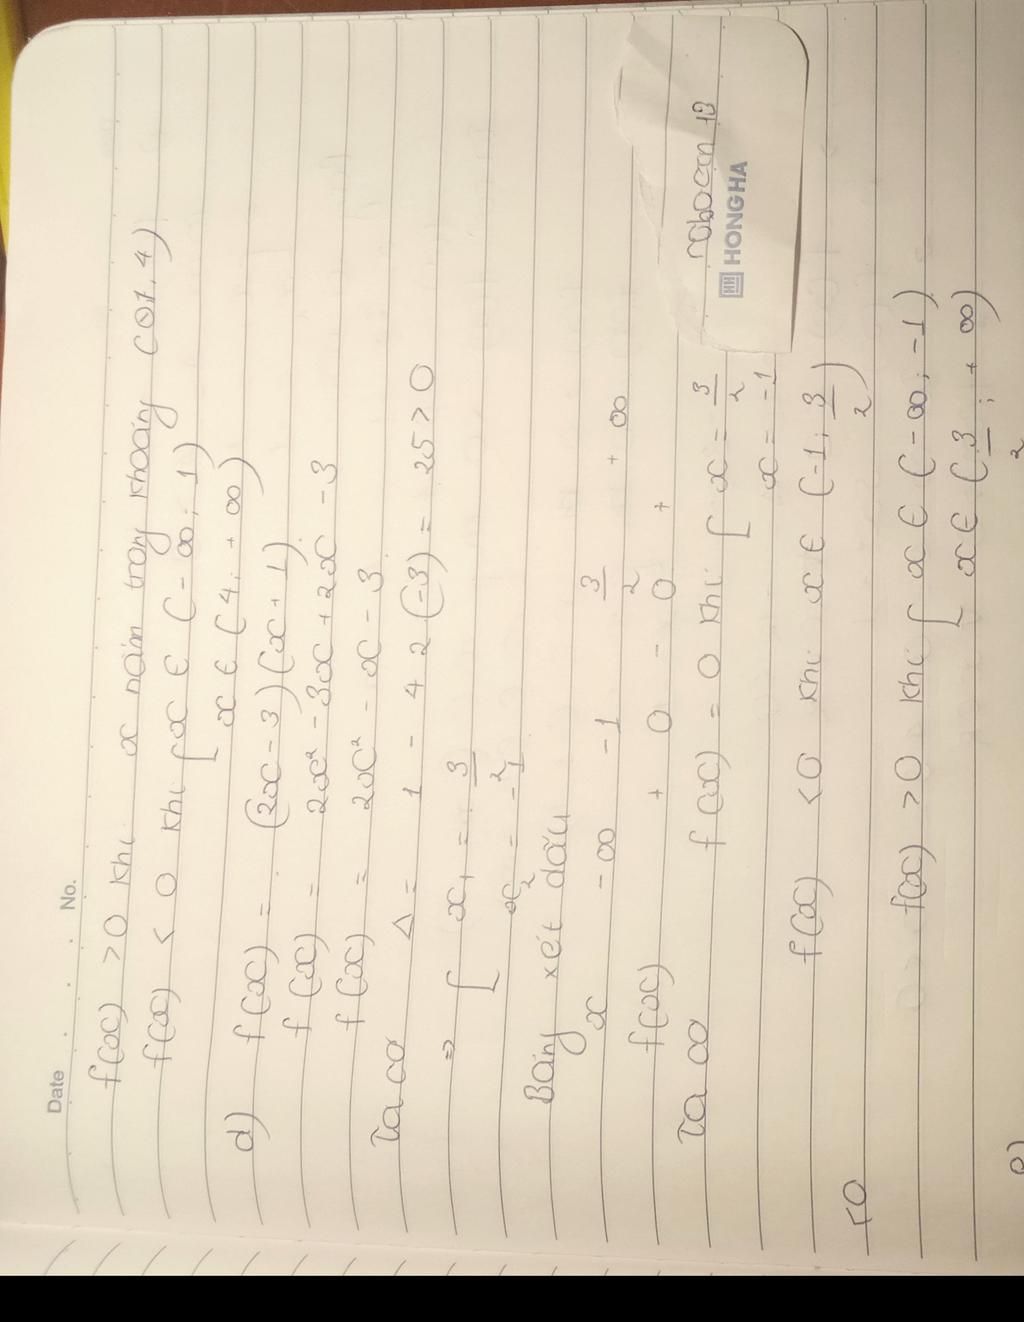 Date No.
f(x) > 0 khi x nằm trong khoảng (01, 4)
f(x) < 0 khi [ x ∈ (-∞; 1)
x ∈ (4; +∞)
d) f(x) = (2x - 3)(x + 1)
f(x) = 2x² - 3x + 2x - 3
f(x) = 2x² - x - 3
Ta có Δ = 1 - 4 2 (-3) = 25 > 0
⇒ [ x₁ = 3/2
x₂ = -1
Bảng xét dấu
x -∞ -1 3/2 +∞
f(x) + 0 - 0 +
Ta có f(x) = 0 khi [ x = 3/2
x = -1
f(x) < 0 khi x ∈ (-1; 3/2)
<0
f(x) > 0 khi [ x ∈ (-∞; -1)
x ∈ (3/2; +∞)
e)
HH HONG HA